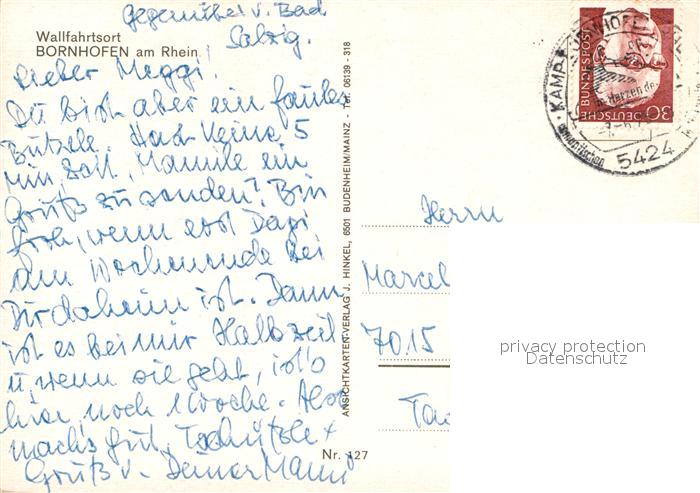 Gegenüber v. Bad
Salzig.
Wallfahrtsort
BORNHOFEN am Rhein
Lieber Meggi!
Du bist aber ein faules
Butzele. Hast keine 5
Min. Zeit, Mamile ein
Gruß zu senden? Bin
froh, wenn erst Papi
am Wochenende bei
Dir daheim ist. Dann
ist es bei mir Halbzeit
u. wenn sie geht, ist's
hier noch 1 Woche. Also
machs gut, Tschüßle +
Gruß v. Deiner Mami
ANSICHTKARTEN-VERLAG J. HINKEL, 6501 BUDENHEIM/MAINZ - Tel. 06139 - 318
Nr. 127
DEUTSCHE BUNDESPOST
30
KAMP
im Herzen der
5424
Herrn
Marcel
7015
privacy protection
Datenschutz